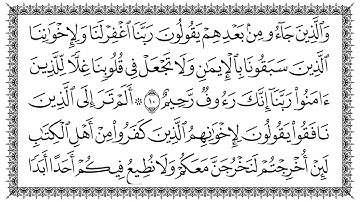 وَٱلَّذِينَ جَآءُو مِنۢ بَعْدِهِمْ يَقُولُونَ رَبَّنَا ٱغْفِرْ لَنَا وَلِإِخْوَٰنِنَا
ٱلَّذِينَ سَبَقُونَا بِٱلْإِيمَٰنِ وَلَا تَجْعَلْ فِى قُلُوبِنَا غِلًّا لِّلَّذِينَ
ءَامَنُوا۟ رَبَّنَآ إِنَّكَ رَءُوفٌ رَّحِيمٌ ١٠ ۞ أَلَمْ تَرَ إِلَى ٱلَّذِينَ
نَافَقُوا۟ يَقُولُونَ لِإِخْوَٰنِهِمُ ٱلَّذِينَ كَفَرُوا۟ مِنْ أَهْلِ ٱلْكِتَٰبِ
لَئِنْ أُخْرِجْتُمْ لَنَخْرُجَنَّ مَعَكُمْ وَلَا نُطِيعُ فِيكُمْ أَحَدًا أَبَدًا